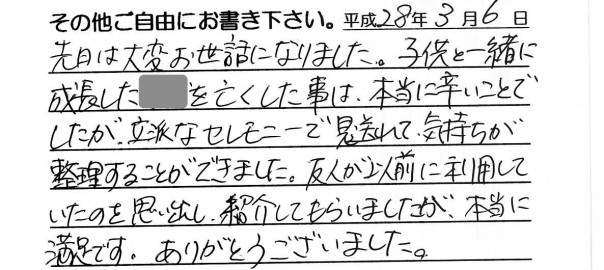 その他ご自由にお書き下さい。平成28年3月6日
先日は大変お世話になりました。子供と一緒に
成長した を亡くした事は、本当に辛いことで
したが、立派なセレモニーで見送れて、気持ちが
整理することができました。友人が以前に利用して
いたのを思い出し、紹介してもらいましたが、本当に
満足です。ありがとうございました。